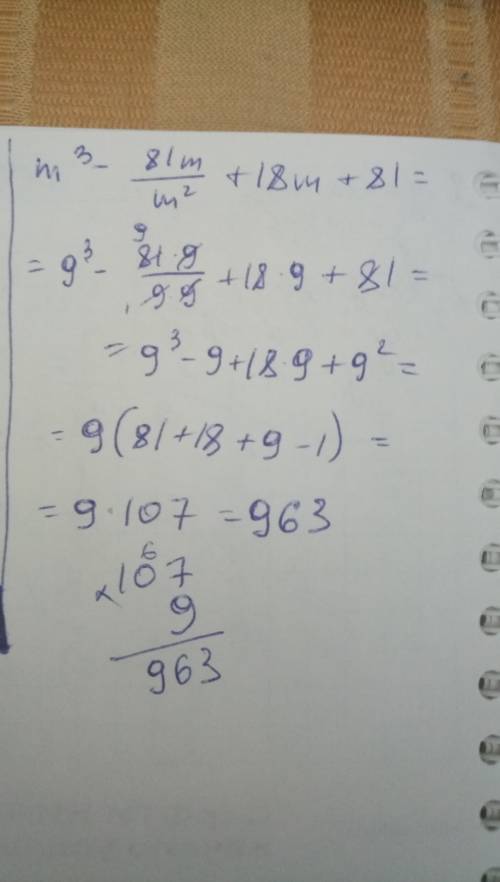 m³ - 81m/m² + 18m + 81 =
= 9³ - 81·9/9·9 + 18·9 + 81 =
= 9³ - 9 + 18·9 + 9² =
= 9(81 + 18 + 9 - 1) =
= 9·107 = 963
6
×107
9
963